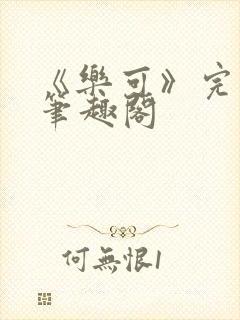 《樂可》完
筆趣閣
何無恨1